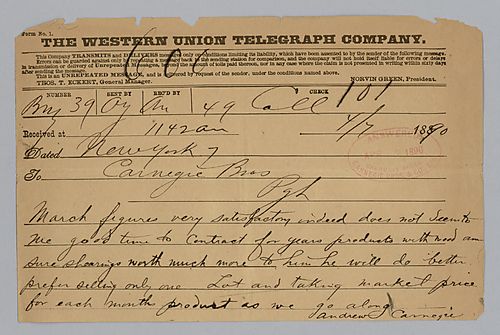 Form No. 1.
THE WESTERN UNION TELEGRAPH COMPANY.
This Company TRANSMITS and DELIVERS messages only on conditions limiting its liability, which have been assented to by the sender of the following message.
Errors can be guarded against only by repeating a message back to the sending station for comparison, and the company will not hold itself liable for errors or delays
in transmission or delivery of Unrepeated Messages, beyond the amount of tolls paid thereon, nor in any case where the claim is not presented in writing within sixty days
after sending the message.
This is an UNREPEATED MESSAGE, and is delivered by request of the sender, under the conditions named above.
THOS. T. ECKERT, General Manager. NORVIN GREEN, President.
NUMBER SENT BY REC'D BY CHECK
39 49 Coll 101
Received at 1142am 4/7 1890
Dated New York 7
To Carnegie Bros
Pgh
March figures very satisfactory indeed does not seem to
me good time to contract for years products with wood am
sure shearings worth much more to him he will do better
prefer selling only one Lot and taking market price
for each month product as we go along
Andrew Carnegie
ANSWERED
1890